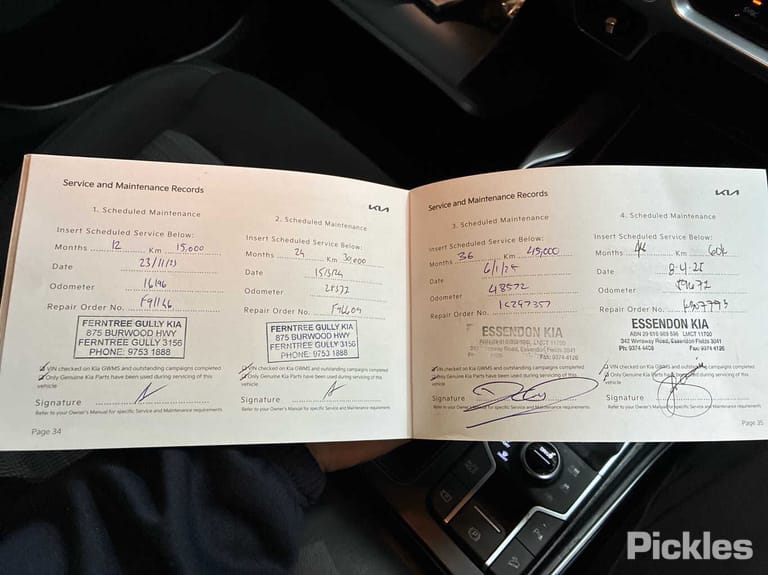 Service and Maintenance Records
KIA
1. Scheduled Maintenance
Insert Scheduled Service Below:
Months 12 Km 15,000
Date 23/11/23
Odometer 16196
Repair Order No.
FERNTREE GULLY KIA
875 BURWOOD HWY
FERNTREE GULLY 3156
PHONE: 9753 1888
VIN checked on Kia GWMS and outstanding campaigns completed
Only Genuine Kia Parts have been used during servicing of this
vehicle
Signature
Refer to your Owner's Manual for specific Service and Maintenance requirements
Page 34
2. Scheduled Maintenance
Insert Scheduled Service Below:
Months 24 Km 30,000
Date
Odometer
Repair Order No.
FERNTREE GULLY KIA
875 BURWOOD HWY
FERNTREE GULLY 3156
PHONE: 9753 1888
VIN checked on Kia GWMS and outstanding campaigns completed
Only Genuine Kia Parts have been used during servicing of this
vehicle
Signature
Refer to your Owner's Manual for specific Service and Maintenance requirements
Service and Maintenance Records
KIA
3. Scheduled Maintenance
Insert Scheduled Service Below:
Months 36 Km 45,000
Date 6/1/25
Odometer 48572
Repair Order No.
ESSENDON KIA
342 Wirraway Road, Essendon Fields 3041
VIN checked on Kia GWMS and outstanding campaigns completed
Only Genuine Kia Parts have been used during servicing of this
vehicle
Signature
Refer to your Owner's Manual for specific Service and Maintenance requirements
4. Scheduled Maintenance
Insert Scheduled Service Below:
Months Km 60k
Date 8-4-25
Odometer
Repair Order No.
ESSENDON KIA
LMCT 11700
342 Wirraway Road, Essendon Fields 3041
Ph: 9374 4408 Fax: 9374 4126
VIN checked on Kia GWMS and outstanding campaigns completed
Only Genuine Kia Parts have been used during servicing of this
vehicle
Signature
Refer to your Owner's Manual for specific Service and Maintenance requirements
Page 35
Pickles